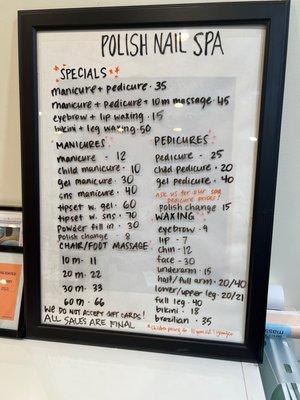 POLISH NAIL SPA
SPECIALS
manicure + pedicure • 35
manicure + pedicure + 10m massage • 45
eyebrow + lip waxing • 15
bikini + leg waxing • 50
MANICURES
manicure - 12
child manicure • 10
gel manicure • 30
sns manicure • 40
tipset w. gel • 60
tipset w. sns • 70
powder fill in • 30
polish change • 8
CHAIR/FOOT MASSAGE
10 m • 11
20 m • 22
30 m • 33
60 m • 66
WE DO NOT ACCEPT GIFT CARDS!
ALL SALES ARE FINAL
PEDICURES
pedicure - 25
child pedicure • 20
gel pedicure • 40
ask us for our spa
pedicure prices!
polish change 15
WAXING
eyebrow • 9
lip • 7
chin • 12
face • 30
underarm • 15
half/full arm • 20/40
lower/upper leg • 20/21
full leg • 40
bikini • 18
brazilian • 35